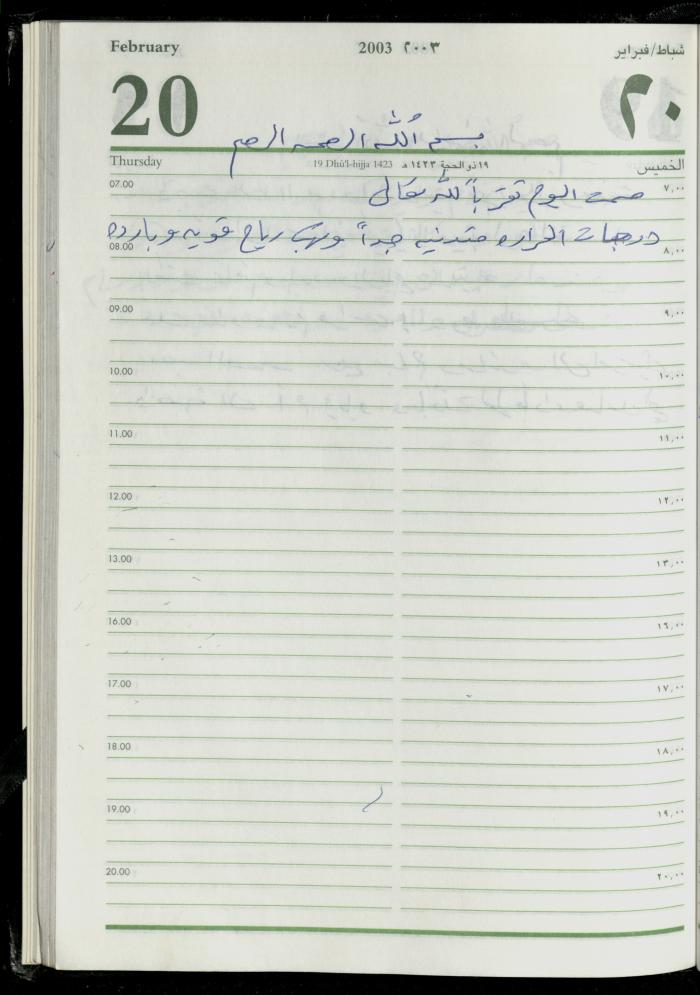 February 2003 ٢٠٠٣ شباط/فبراير
20 ٢٠
بسم الله الرحمن الرحيم
Thursday 19 Dhū'l-hijja 1423 ١٩ ذو الحجة ١٤٢٣ هـ الخميس
07.00 ٧,٠٠
صمت اليوم تقرباً لله تعالى
درجات الحراره متدنيه جداً وتهب رياح قويه وبارده
08.00 ٨,٠٠
09.00 ٩,٠٠
10.00 ١٠,٠٠
11.00 ١١,٠٠
12.00 ١٢,٠٠
13.00 ١٣,٠٠
16.00 ١٦,٠٠
17.00 ١٧,٠٠
18.00 ١٨,٠٠
19.00 ١٩,٠٠
20.00 ٢٠,٠٠